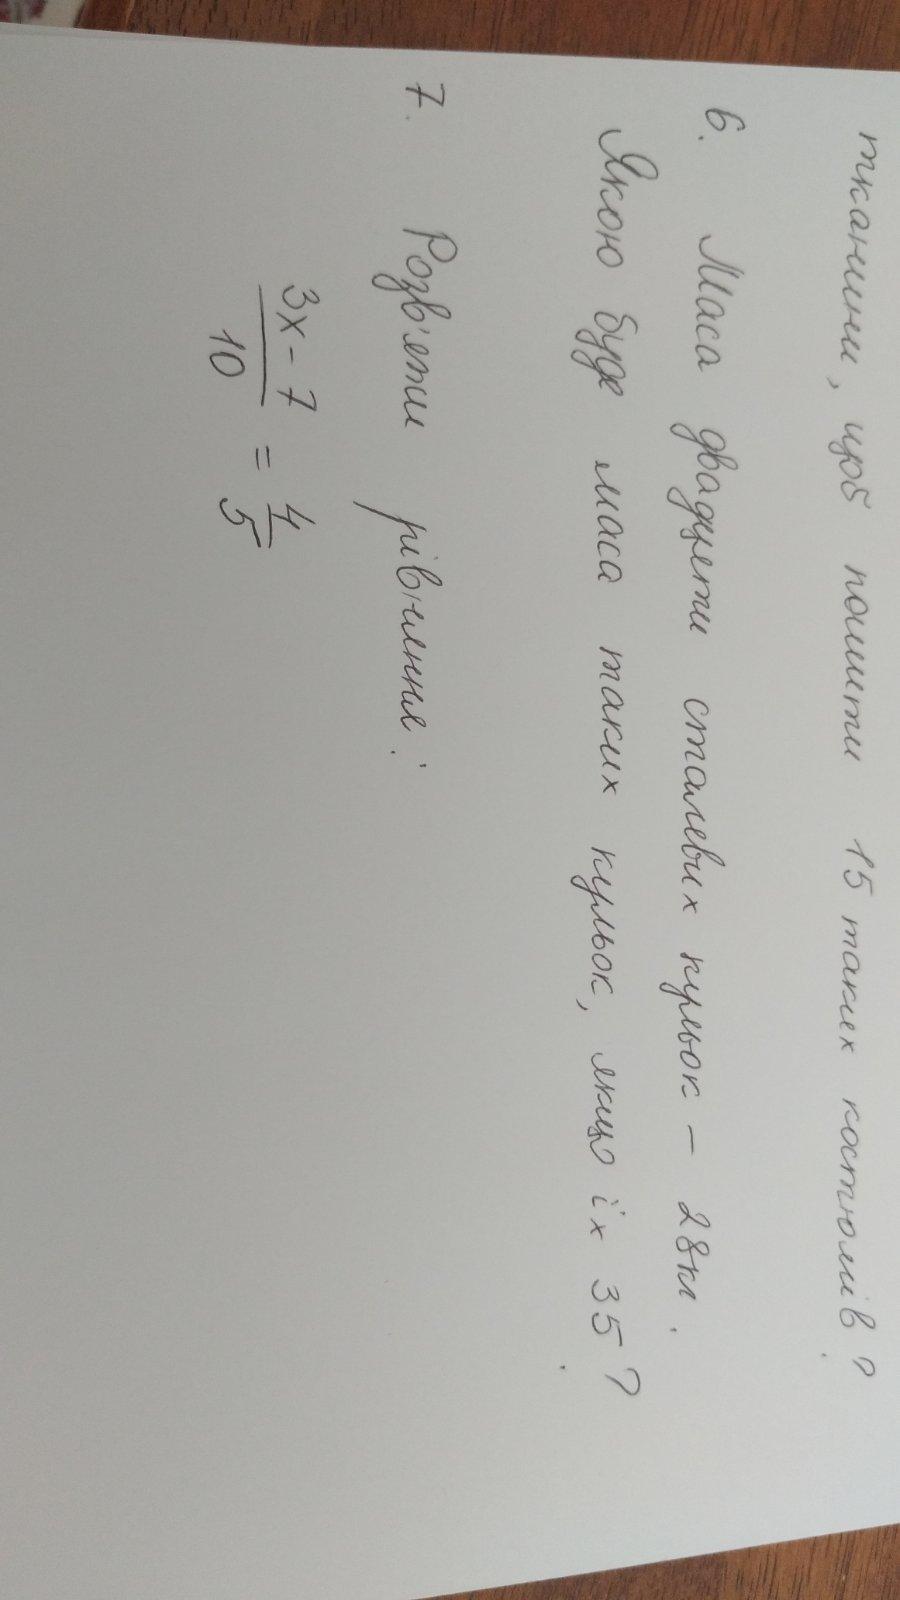 тканини, щоб пошити 15 таких костюмів?
6. Маса двадцяти сталевих кульок – 28кг.
Якою буде маса таких кульок, якщо їх 35?
7. Розв'яжи рівняння:
3x - 7 / 10 = 4 / 5